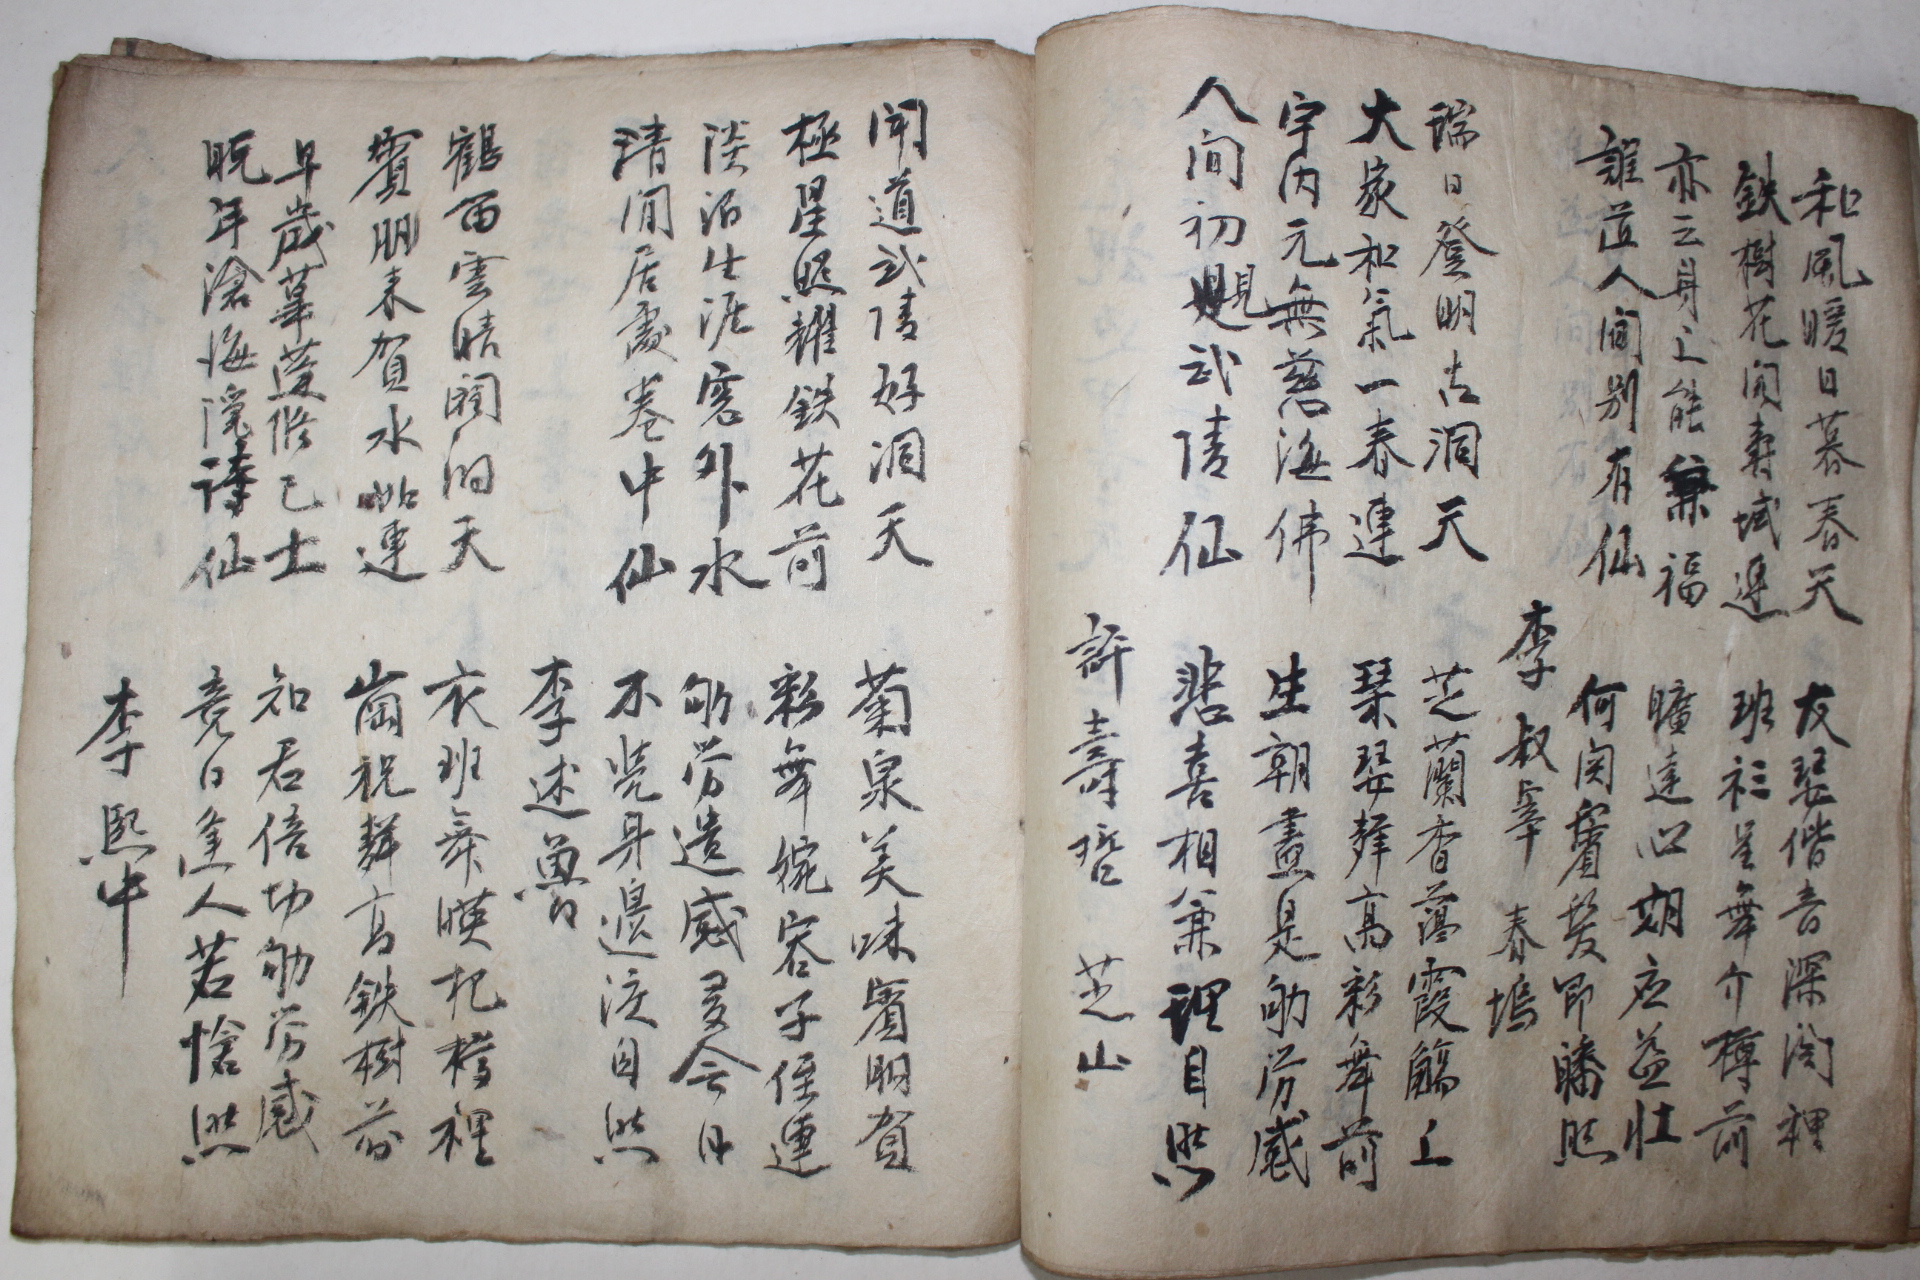 和風暖日暮春天 友琴偕音深閣裡
鉄樹花開壽域連 班衫呈舞介樽前
亦云身上能兼福 曠達心期應益壯
誰道人間別有仙 何関鬢髮即皤然
李叔宰 春塢
瑞日登明古洞天 芝蘭香藹霞觴上
大家和氣一春連 琴瑟聲高彩舞前
宇内元無慈海佛 生朝盡是劬勞感
人間初見武陵仙 悲喜相兼理自然
許壽哲 芝山
聞道武陵好洞天 菊泉美味賓朋賀
極星照耀鉄花前 彩舞婉容子侄連
淡泊生涯雲外水 劬勞遺感多今日
清閒居處巷中仙 不覺身邊淚自然
李述魯
鶴西雲晴闊洞天 衣班舞暎杞樽裡
賓朋來賀水站連 崗祝聲高鉄樹前
早歲幕蓮修己士 知君倍切劬勞感
晩年滄海隐詩仙 竟日逢人若愴然
李熙中